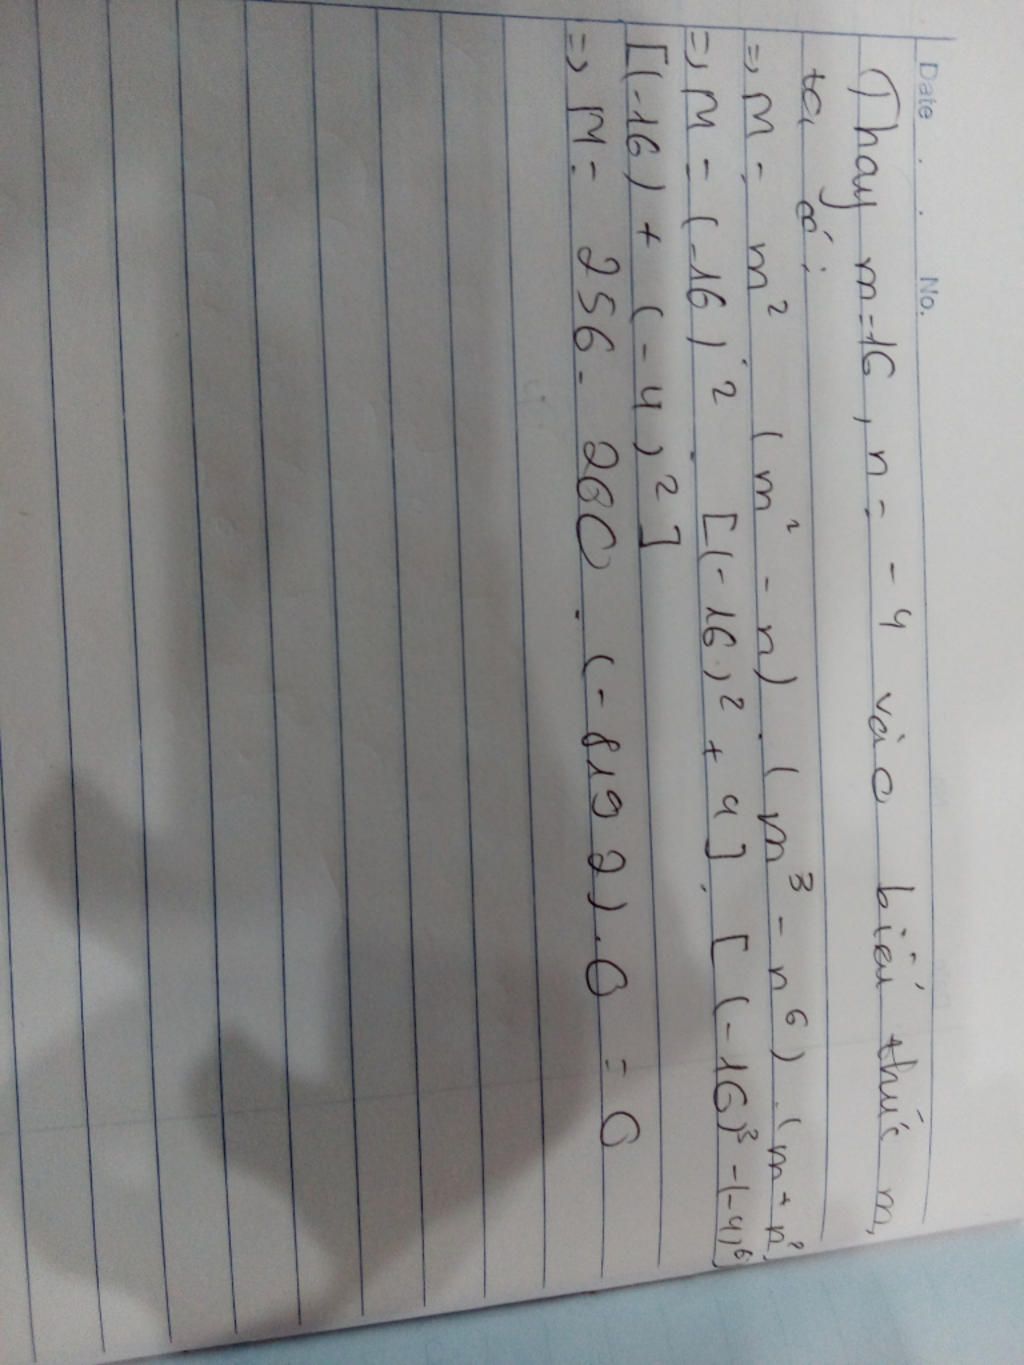 Date . . No.
Thay m=16, n = -4 vào biểu thức m,
ta có:
=> M = m² (m² - n) . (m³ - n⁶) . (m + n²)
=> M = (-16)² . [(-16)² + 4] . [(-16)³ - (-4)⁶]
[(-16) + (-4)²]
=> M = 256 . 260 . (-8192) . 0 = 0